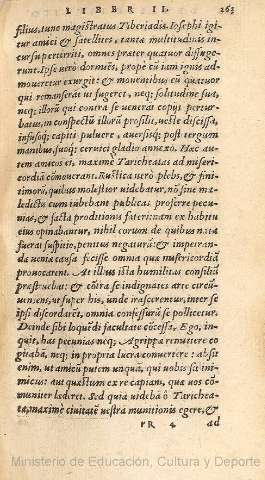 LIBER II. 263
filius, tunc magistratus Tiberiadis. Iosephi igi
tur amici & satellites, tantæ multitudinis in-
cursu perterriti, omnes præter quatuor diffuge-
runt. Ipse verò dormiēs, prope cū iam ignis ad-
moueretur exurgit: & mouentibus eū quatuor
qui remanserāt ut fugeret, neq; solitudine sua,
neq; illorū qui contra se uenerāt copijs pertur-
batus, in conspectū illorū prosilit, ueste discissa,
infusoq; capiti puluere, auersisq; post tergum
manibus, suoq; ceruici gladio annexo. Hæc au-
tem amicos ei, maximè Taricheatas ad miseri-
cordiā cōmouerant. Rustica uerò plebs, & fini-
timorū, quibus molestior uidebatur, nō sine ma-
ledictis eum iubebant publicas proferre pecu-
nias, & facta proditionis fateri: nam ex habitu
eius opinabantur, nihil eorum de quibus nata
fuerat suspitio, penitus negaturū: & impetran-
dæ ueniæ causa fecisse omnia quæ misericordiā
prouocarent. At illius ista humilitas consiliū
præstruebat: & cōtra se indignates arte circū-
ueniens, ut super his, unde irascerentur, inter se
ipsi discordarēt, omnia confessurū se pollicetur.
Deinde sibi loquēdi facultate cōcessa, Ego, in-
quit, has pecunias neq; Agrippæ remittere co
gitabā, neq; in propria lucra conuertere: absit
enim, ut amicū putem unquā, qui uobis sit ini-
micus: aut quæstum ex re capiam, quæ uos co-
muniter læderet. Sed quia uidebā ô Tarichea-
tæ, maximè ciuitatē vestrā munitionis egere, &
rR 4 ad
Ministerio de Educación, Cultura y Deporte